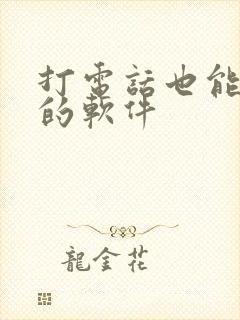 打電話也能
的軟件
龍金花